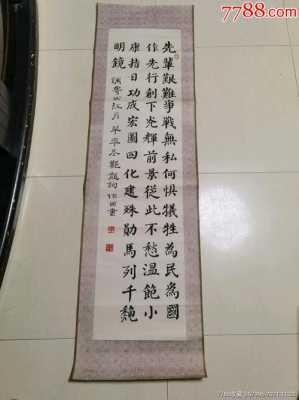 7788.com
先輩艱難爭戰無私何懼犧牲為民為國
作先行創下光輝前景從此不愁溫飽小
康指日功成宏圖四化建殊勛馬列千龝
明鏡 調寄西江月